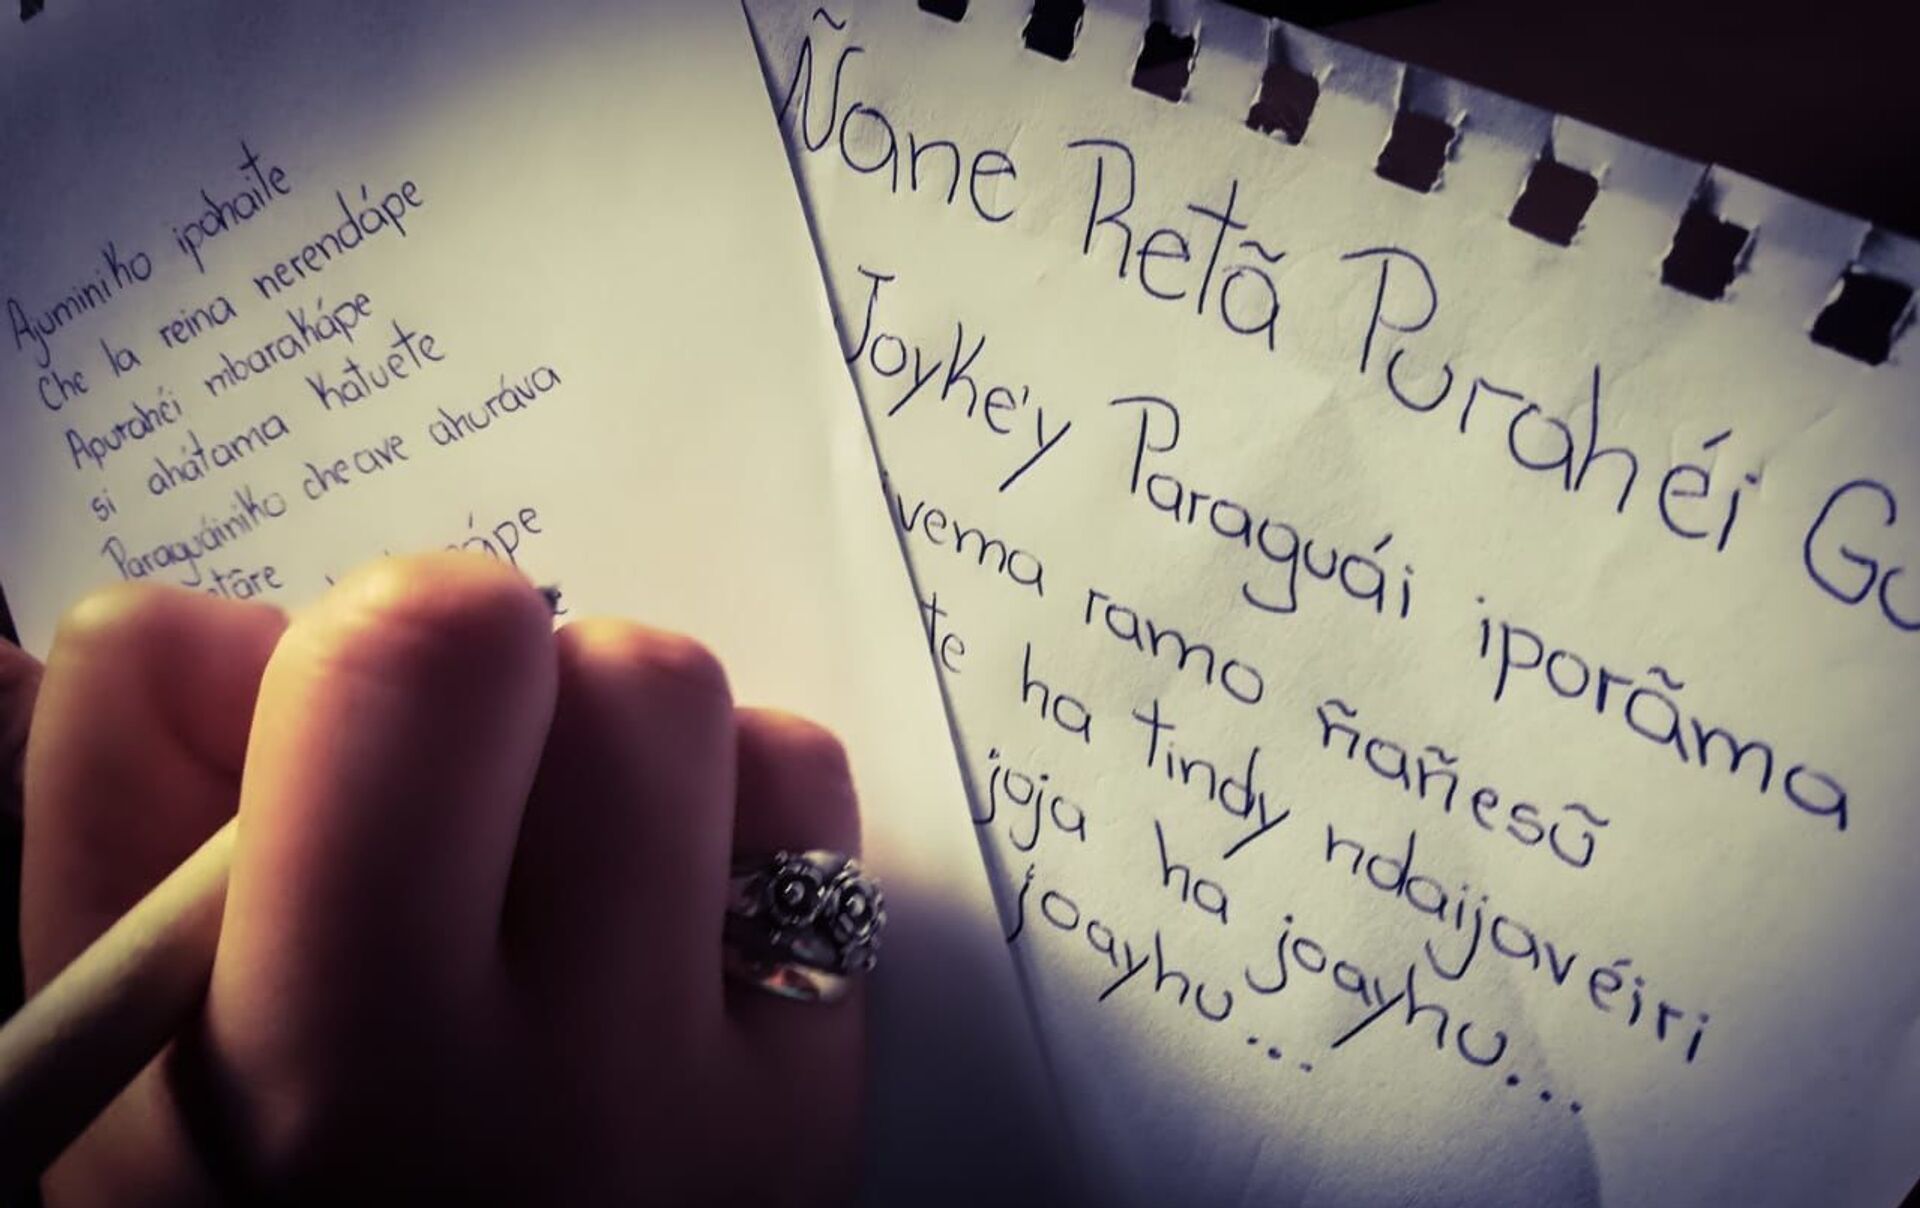 Ajuminiko ipahaite
Che la reina nerendápe
Apurahéi mbarakápe
si ahátama katuete
Paraguáiniko cheave ahuráva
Ñane Retã Purahéi Gu
Joyke'y Paraguái iporãma
ivema ramo ñañesũ
te ha tindy ndaijavéiri
joja ha joayhu...
joayhu...